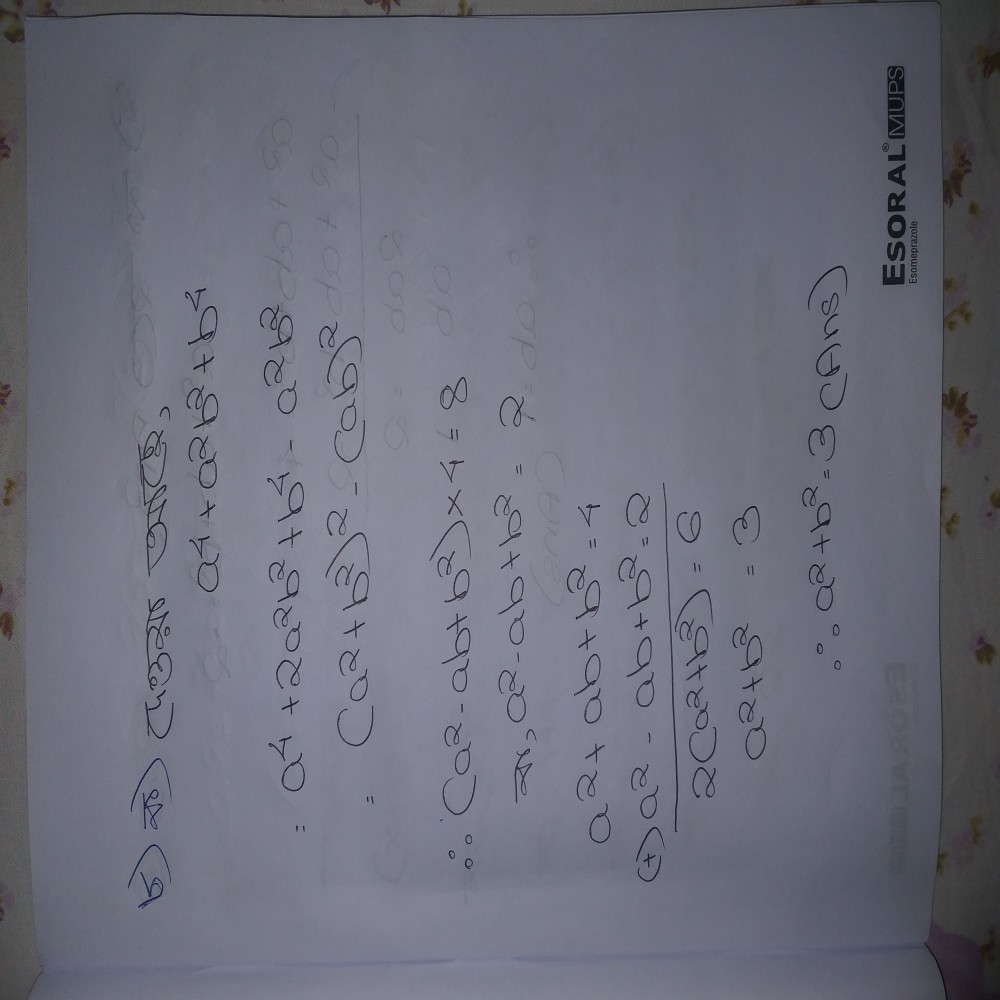 ৮) ক) দেওয়া আছে,
a⁴ + a²b² + b⁴
= a⁴ + 2a²b² + b⁴ - a²b²
= (a² + b²)² - (ab)²
∴ (a² - ab + b²) × 4 = 8
বা, a² - ab + b² = 2
a² + ab + b² = 4
(+) a² - ab + b² = 2
2(a² + b²) = 6
a² + b² = 3
∴ a² + b² = 3 (Ans)
ESORAL® MUPS
Esomeprazole